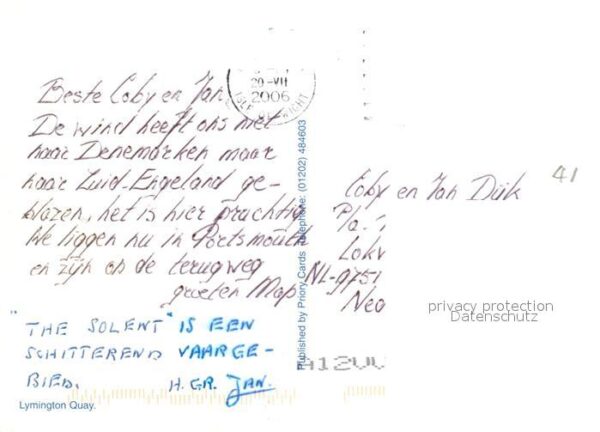 20-VII
2006
ISLE OF WIGHT
Beste Coby en Jan
De wind heeft ons niet
naar Denemarken maar
naar Zuid-Engeland ge-
blazen, het is hier prachtig
We liggen nu in Portsmouth
en zijn op de terugweg
groeten Map
"THE SOLENT" IS EEN
SCHITTEREND VAARGE-
BIED.
H. GR. JAN.
Lymington Quay.
Published by Priory Cards Telephone: (01202) 484603
41
Coby en Jan Dijk
Pla
Lokv
NL-9751
Ned
privacy protection
Datenschutz